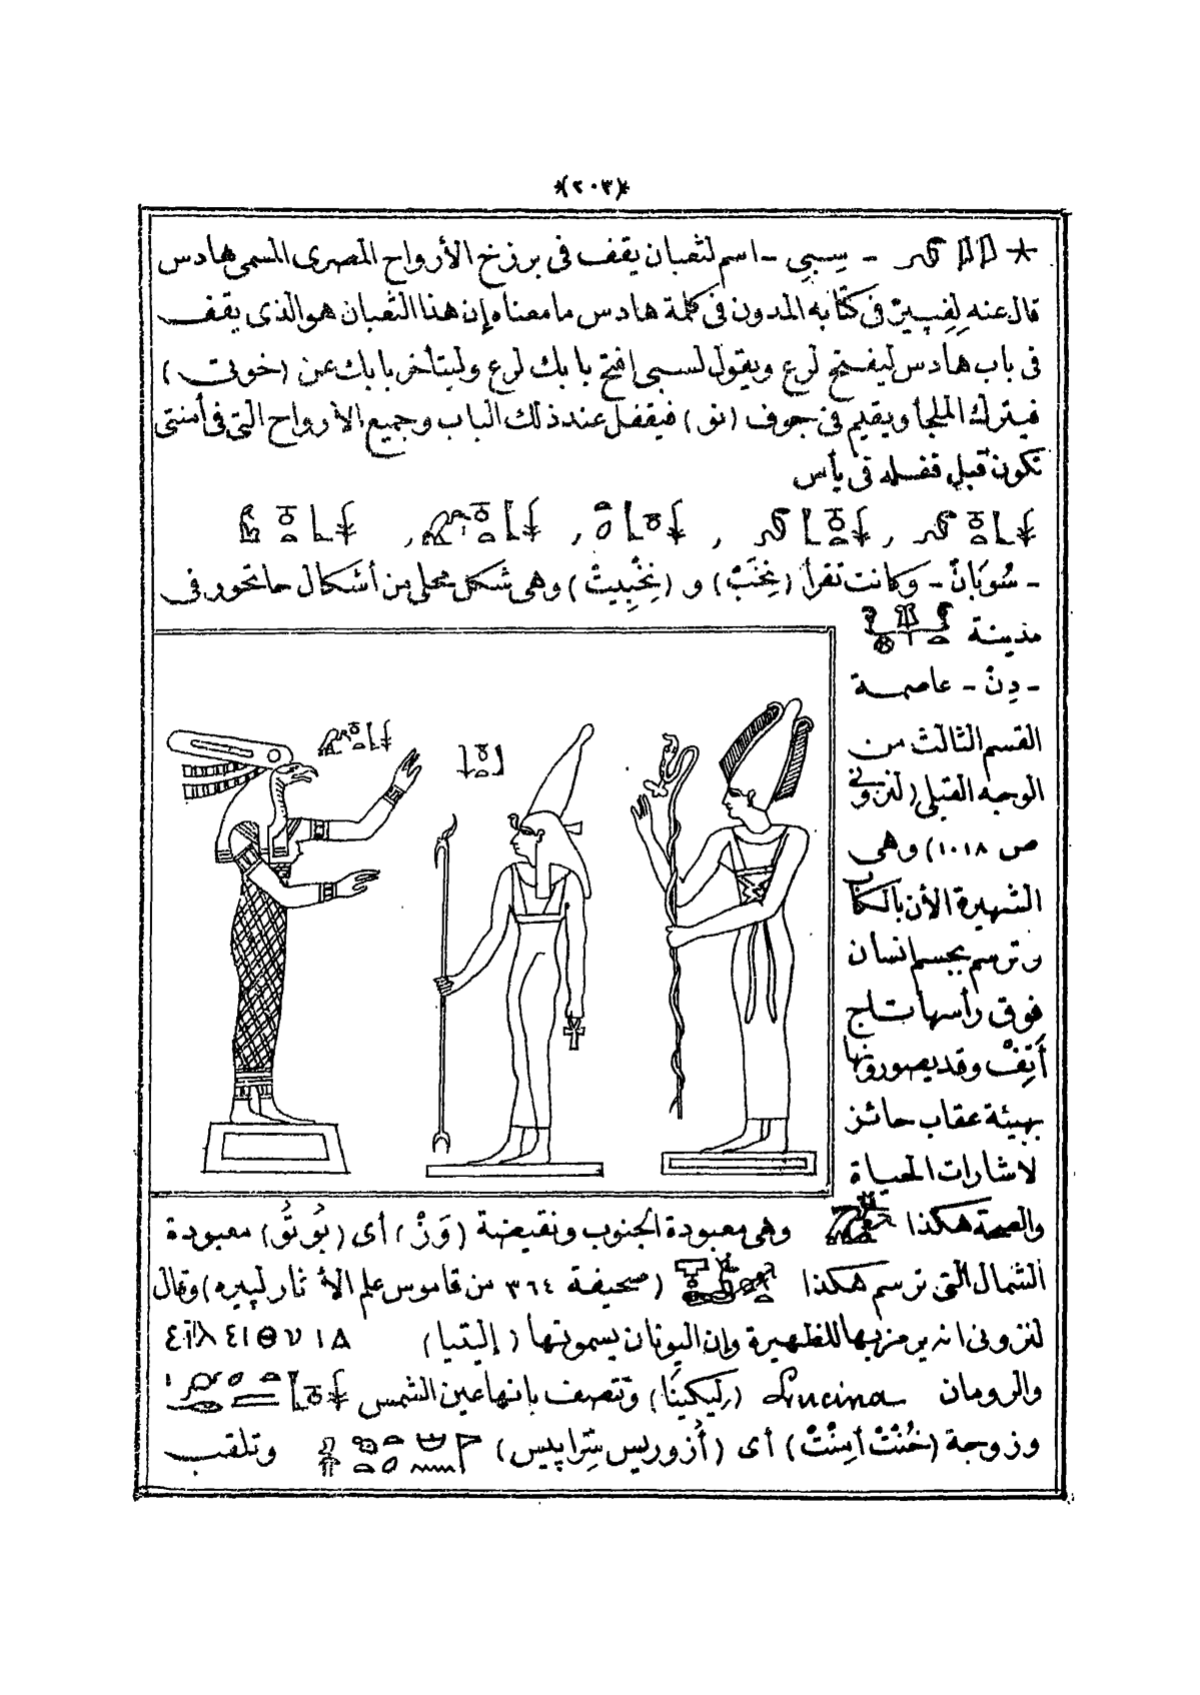 *(٢٠٣)*
- سِبِي - اسم لثعبان يقف فى برزخ الأرواح المصرى المسمى هادس
قال عنه لِفِبِير فى كتابه المدون فى كلمة هادس ما معناه إن هذا الثعبان هو الذى يقف
فى باب هادس ليفتح لرع ويقول لسبى افتح بابك لرع وليتأخر بابك عن (خوتى)
فيترك الملجأ ويقيم فى جوف (نو) فيقفل عند ذلك الباب وجميع الأرواح التى فى أمنتى
تكون قبل قفله فى يأس
, , , ,
- سُوبَانْ - وكانت تقرأ (نِخَبْ) و (نِخْبِيتْ) وهى شكل محلى من أشكال حاتحور فى
مدينة
- دِنْ - عاصمة
القسم الثالث من
الوجه القبلى (لنزونى
ص ١٠١٨) وهى
الشهيرة الأن بالكاب
وترسم بجسم انسان
فوق رأسها تاج
أَتِفْ وقد يصورونها
بهيئة عقاب حائز
لاشارات الحياة
والصحة هكذا وهى معبودة الجنوب ونقيضة (وَزْ) أى (بُوتُو) معبودة
الشمال التى ترسم هكذا (صحيفة ٣٦٤ من قاموس علم الأثار لپيره) وقال
لنزونى انه يرمز بها للظهيرة وإن اليونان يسمونها (إليتيا)
والرومان Lucina (ليكينَا) وتتصف بانها عين الشمس
وزوجة (خُنْتْ أمِنْتْ) أى (أُزوريس سِراپيس) وتلقب